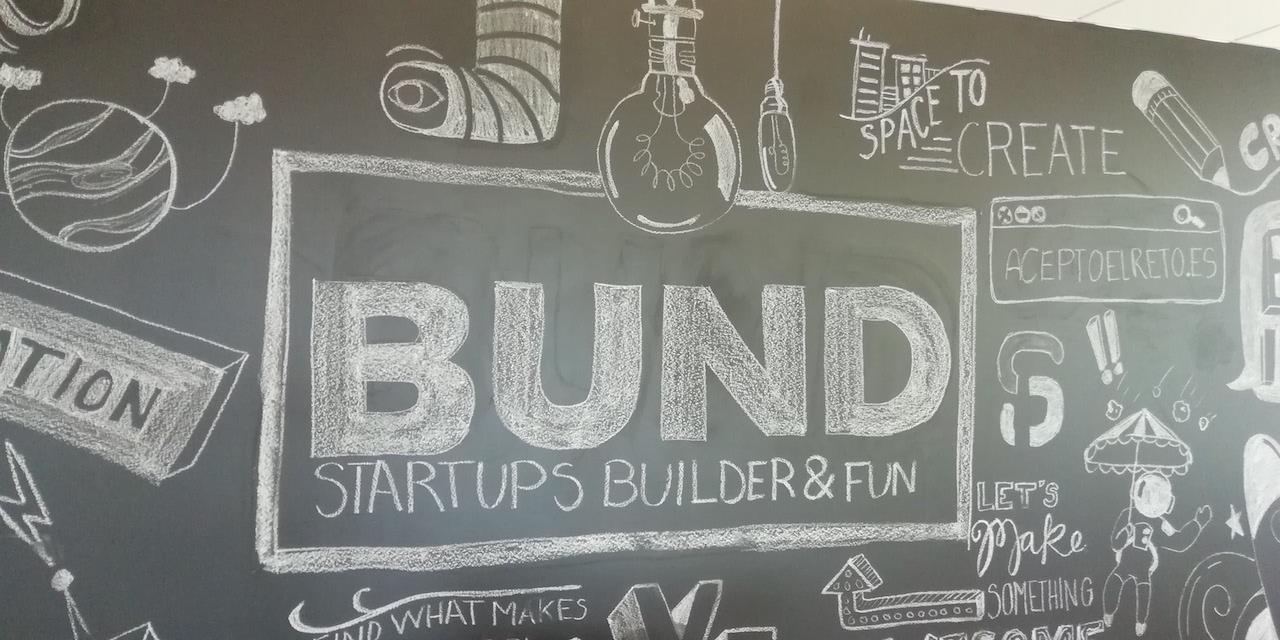 SPACE TO
CREATE
ACEPTOELRETO.ES
TION
BUND
STARTUPS BUILDER & FUN
LET'S
Make
SOMETHING
FIND WHAT MAKES